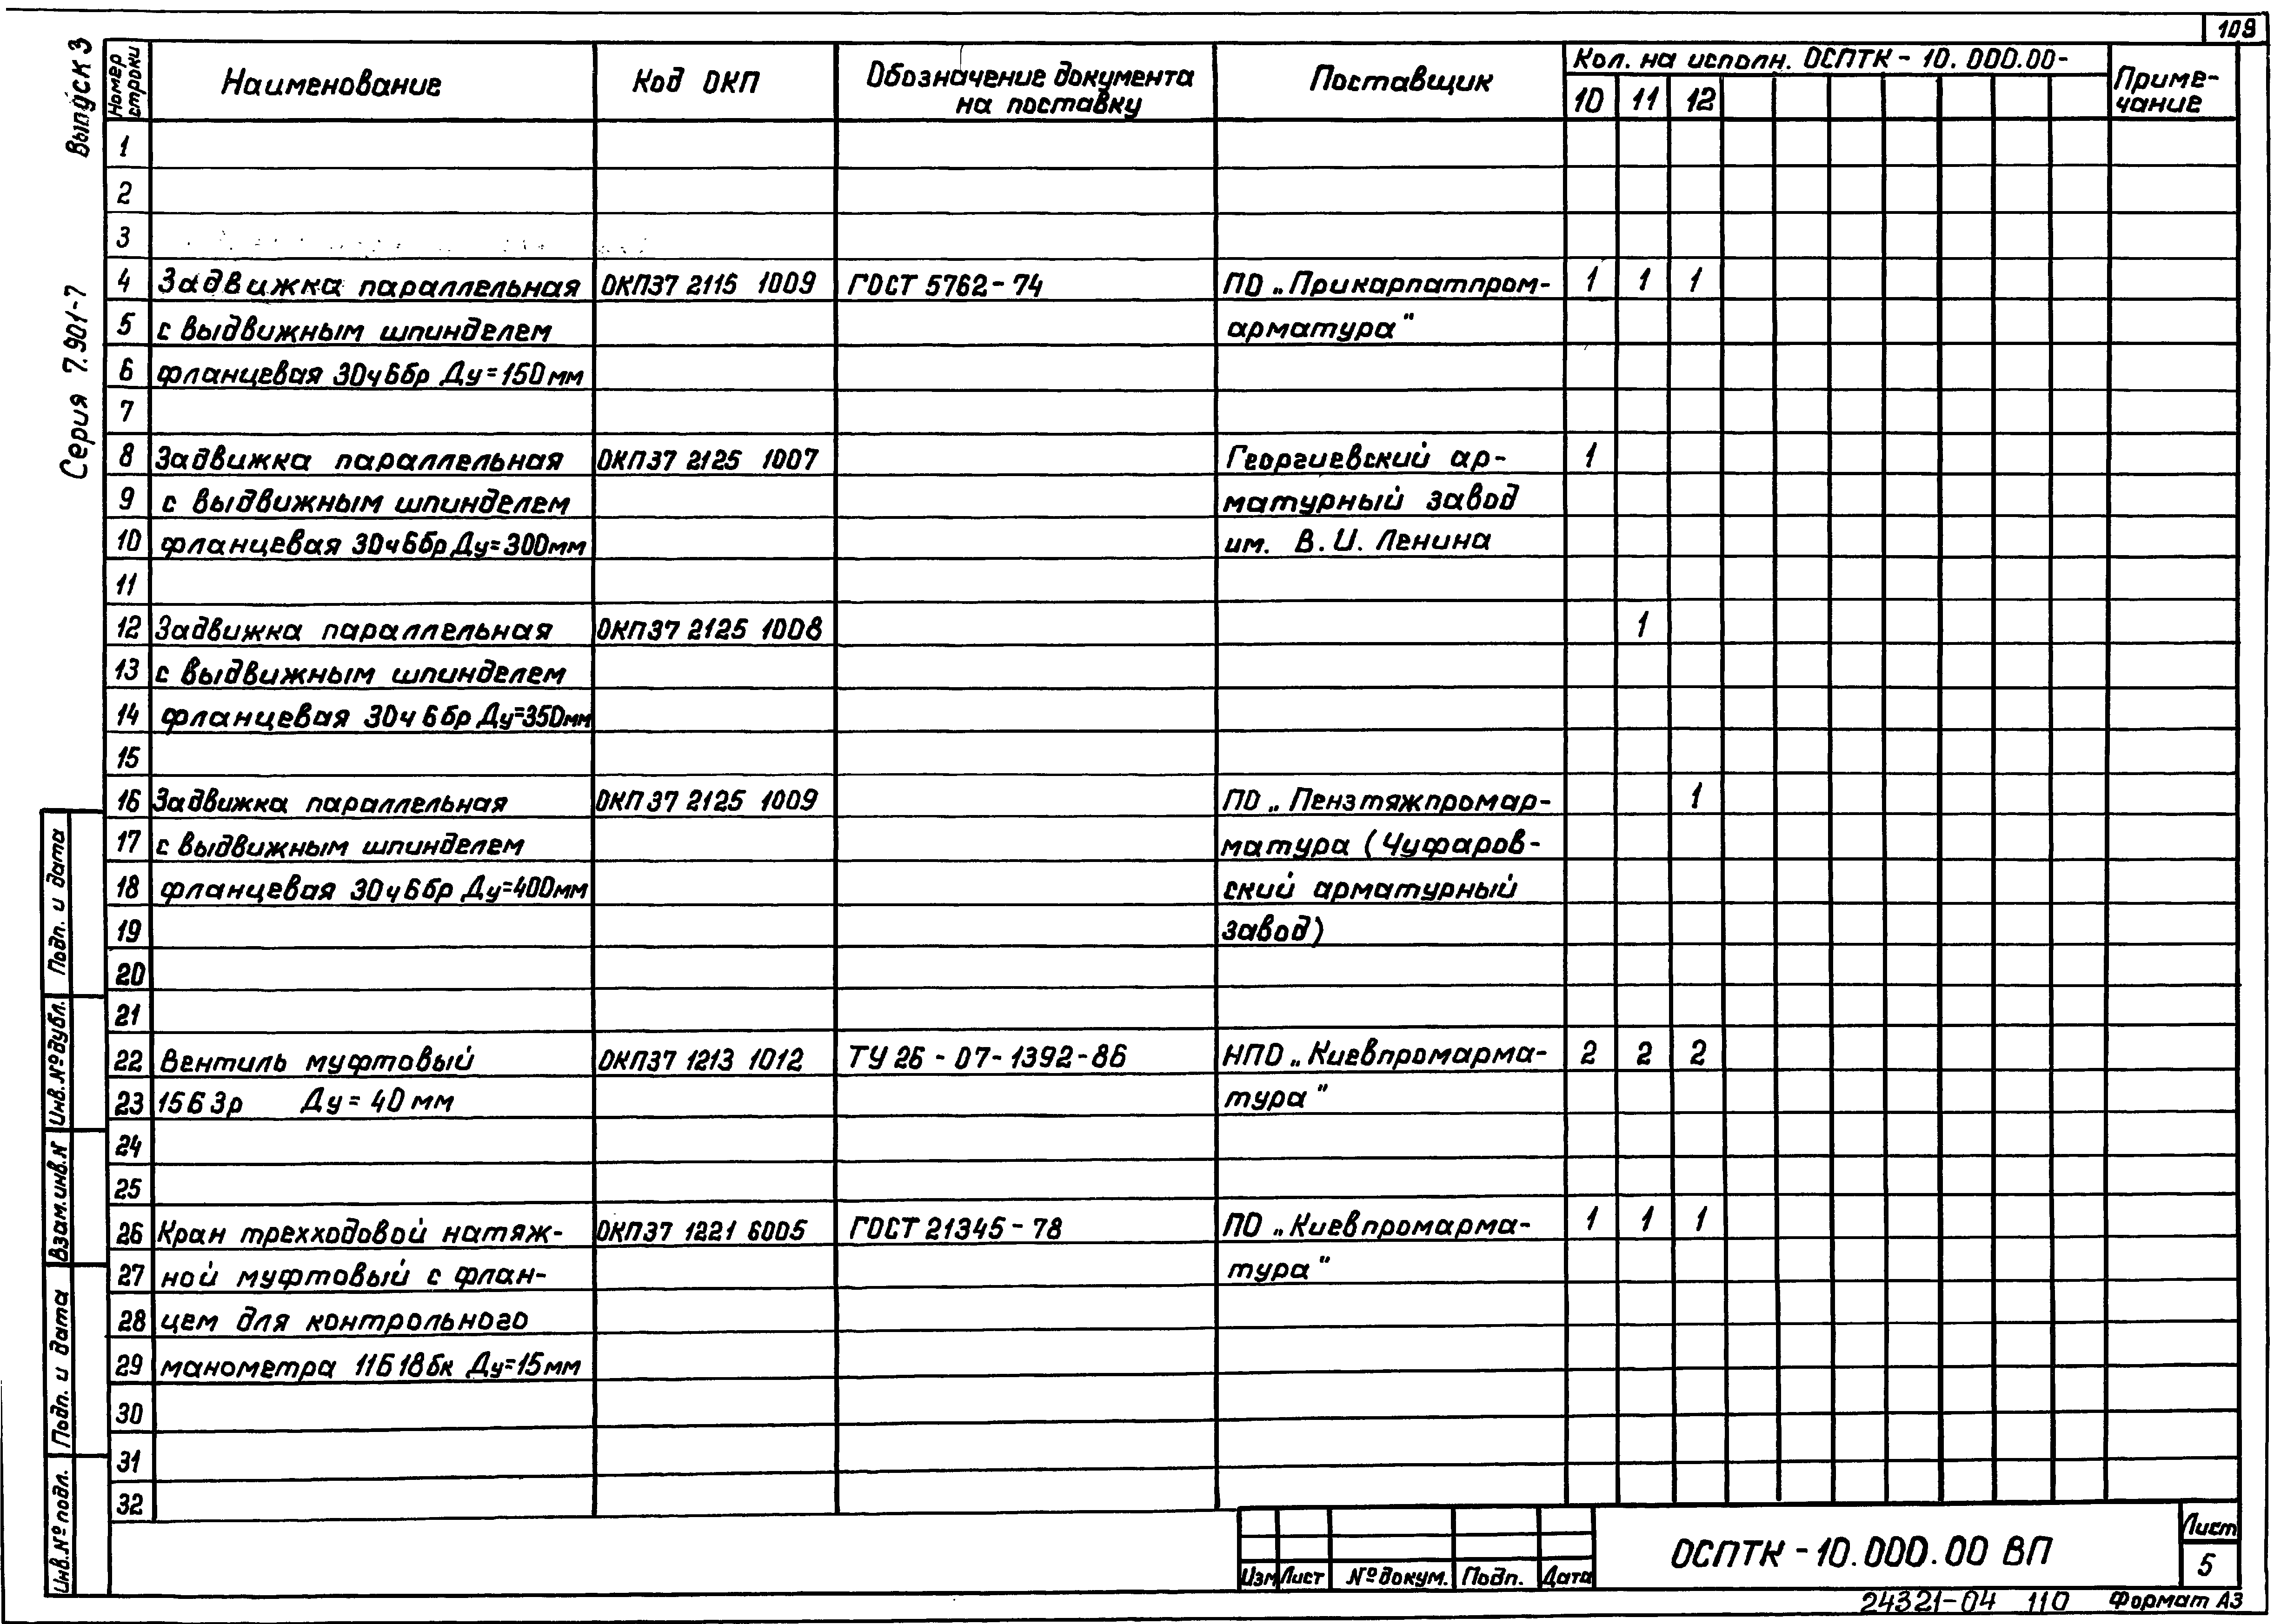 109
Выпуск 3
Серия 7.901-7
Номер строки
Наименование
Код ОКП
Обозначение документа
на поставку
Поставщик
Кол. на исполн. ОСПТК - 10.000.00-
10 11 12
Приме-
чание
1
2
3
4 Задвижка параллельная ОКП37 2115 1009 ГОСТ 5762-74 ПО „Прикарпатпром- 1 1 1
5 с выдвижным шпинделем арматура"
6 фланцевая 30ч6бр Ду=150мм
7
8 Задвижка параллельная ОКП37 2125 1007 Георгиевский ар- 1
9 с выдвижным шпинделем матурный завод
10 фланцевая 30ч6бр Ду=300мм им. В.И. Ленина
11
12 Задвижка параллельная ОКП37 2125 1008 1
13 с выдвижным шпинделем
14 фланцевая 30ч6бр Ду=350мм
15
16 Задвижка параллельная ОКП37 2125 1009 ПО „Пензтяжпромар- 1
17 с выдвижным шпинделем матура (Чуфаров-
18 фланцевая 30ч6бр Ду=400мм ский арматурный
19 завод)
20
21
22 Вентиль муфтовый ОКП37 1213 1012 ТУ 26-07-1392-86 НПО „Киевпромарма- 2 2 2
23 15Б3р Ду=40мм тура"
24
25
26 Кран трехходовой натяж- ОКП37 1221 6005 ГОСТ 21345-78 ПО „Киевпромарма- 1 1 1
27 ной муфтовый с флан- тура"
28 цем для контрольного
29 манометра 11Б18бк Ду=15мм
30
31
32
Подп. и дата
Инв.№ дубл.
Взам.инв.№
Подп. и дата
Инв.№ подл.
Изм Лист № докум. Подп. Дата
ОСПТК-10.000.00 ВП
Лист
5
24321-04 110 Формат А3